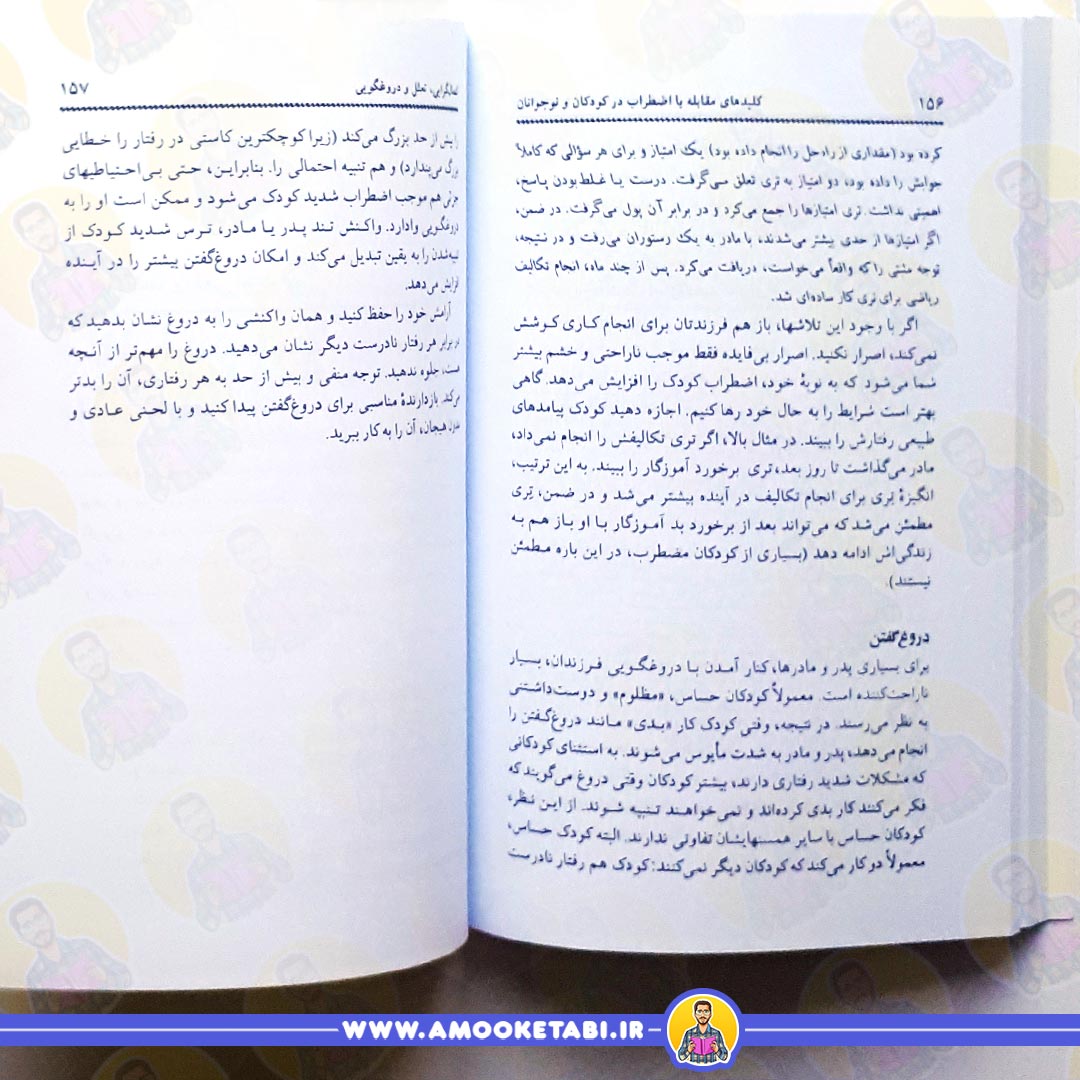 ۱۵۶ کلیدهای مقابله با اضطراب در کودکان و نوجوانان
کرده بود (مقداری از راه‌حل را انجام داده بود) یک امتیاز و برای هر سؤالی که کاملاً
جوابش را داده بود، دو امتیاز به تری تعلق می‌گرفت. درست یا غلط‌بودن پاسخ،
اهمیتی نداشت. تری امتیازها را جمع می‌کرد و در برابر آن پول می‌گرفت. در ضمن،
اگر امتیازها از حدی بیشتر می‌شدند، با مادر به یک رستوران می‌رفت و در نتیجه،
توجه مثبتی را که واقعاً می‌خواست، دریافت می‌کرد. پس از چند ماه، انجام تکالیف
ریاضی برای تری کار ساده‌ای شد.
اگر با وجود این تلاشها، باز هم فرزندتان برای انجام کاری کوشش
نمی‌کند، اصرار نکنید. اصرار بی‌فایده فقط موجب ناراحتی و خشم بیشتر
شما می‌شود که به نوبهٔ خود، اضطراب کودک را افزایش می‌دهد. گاهی
بهتر است شرایط را به حال خود رها کنیم. اجازه دهید کودک پیامدهای
طبیعی رفتارش را ببیند. در مثال بالا، اگر تری تکالیفش را انجام نمی‌داد،
مادر می‌گذاشت تا روز بعد، تری برخورد آموزگار را ببیند. به این ترتیب،
انگیزهٔ تری برای انجام تکالیف در آینده بیشتر می‌شد و در ضمن، تری
مطمئن می‌شد که می‌تواند بعد از برخورد بد آموزگار با او باز هم به
زندگی‌اش ادامه دهد (بسیاری از کودکان مضطرب، در این باره مطمئن
نیستند).
دروغ‌گفتن
برای بسیاری پدر و مادرها، کنار آمدن با دروغگویی فرزندان، بسیار
ناراحت‌کننده است. معمولاً کودکان حساس، «مظلوم» و دوست‌داشتنی
به نظر می‌رسند. در نتیجه، وقتی کودک کار «بدی» مانند دروغ‌گفتن را
انجام می‌دهد، پدر و مادر به شدت مأیوس می‌شوند. به استثنای کودکانی
که مشکلات شدید رفتاری دارند، بیشتر کودکان وقتی دروغ می‌گویند که
فکر می‌کنند کار بدی کرده‌اند و نمی‌خواهند تنبیه شوند. از این نظر،
کودکان حساس با سایر همسنهایشان تفاوتی ندارند. البته کودک حساس،
معمولاً دو کار می‌کند که کودکان دیگر نمی‌کنند: کودک هم رفتار نادرست
تعلل و دروغگویی ۱۵۷
را بیش از حد بزرگ می‌کند (زیرا کوچکترین کاستی در رفتار را خطایی
بزرگ می‌پندارد) و هم تنبیه احتمالی را. بنابراین، حتی بی‌احتیاطیهای
جزئی هم موجب اضطراب شدید کودک می‌شود و ممکن است او را به
دروغگویی وادارد. واکنش تند پدر یا مادر، ترس شدید کودک از
تنبیه‌شدن را به یقین تبدیل می‌کند و امکان دروغ‌گفتن بیشتر را در آینده
افزایش می‌دهد.
آرامش خود را حفظ کنید و همان واکنشی را به دروغ نشان بدهید که
در برابر هر رفتار نادرست دیگر نشان می‌دهید. دروغ را مهم‌تر از آنچه
هست، جلوه ندهید. توجه منفی و بیش از حد به هر رفتاری، آن را بدتر
می‌کند. بازدارندهٔ مناسبی برای دروغ‌گفتن پیدا کنید و با لحنی عادی و
بدون هیجان، آن را به کار ببرید.
WWW.AMOOKETABI.IR